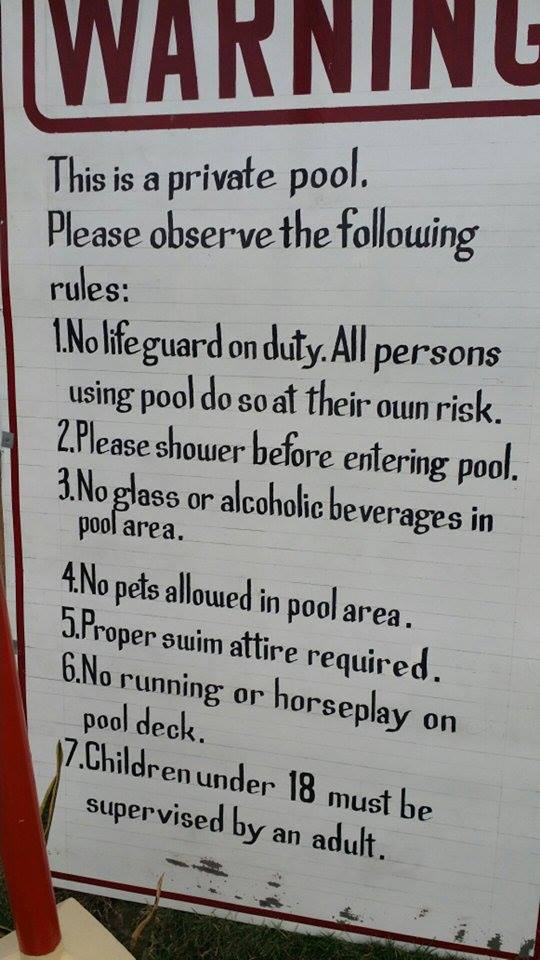 WARNING
This is a private pool.
Please observe the following
rules:
1.No lifeguard on duty. All persons
using pool do so at their own risk.
2.Please shower before entering pool.
3.No glass or alcoholic beverages in
pool area.
4.No pets allowed in pool area.
5.Proper swim attire required.
6.No running or horseplay on
pool deck.
7.Children under 18 must be
supervised by an adult.